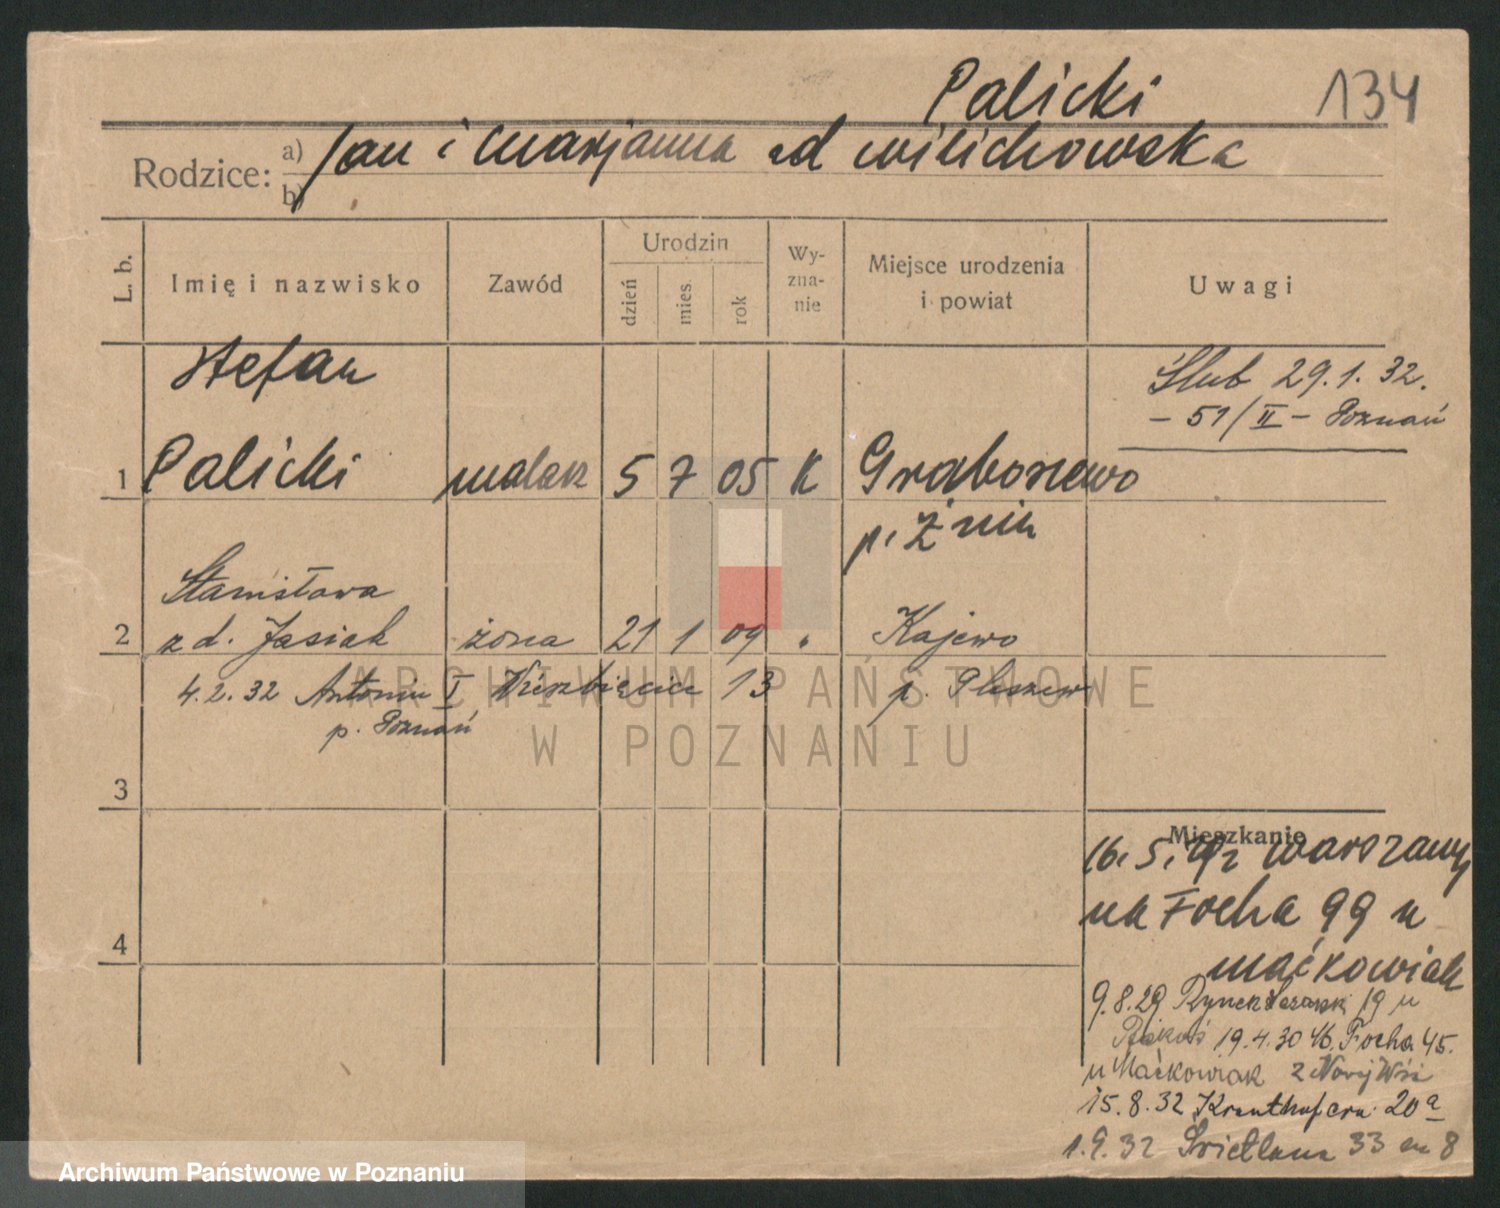 Palicki 134
Rodzice: a) Jan i Marjanna od Wilichowska
b)
L. b. Imię i nazwisko Zawód Urodzin dzień mies. rok Wy-zna-nie Miejsce urodzenia i powiat Uwagi
Stefan
Ślub 29.1.32.
– 51/II – Poznań
1 Palicki malarz 5 7 05 K Grabonowo
p. Żnin
Stanisława
2 z d. Jasiak żona 21 1 09 " Kajewo
4.2.32 Antonin I 13 p. Pleszew
p. Poznań
3
Mieszkanie
16. 5. Warszawy
na Focha 99 u
4
Maćkowiak
9.8.29 Rynek Łazarski 19 u
19.4.30 Focha 45.
u Maćkowiak z Nowej Wsi
15.8.32 Krauthofera 20a
1.9.32 Świetlana 33 m 8
ARCHIWUM PAŃSTWOWE
W POZNANIU
Archiwum Państwowe w Poznaniu